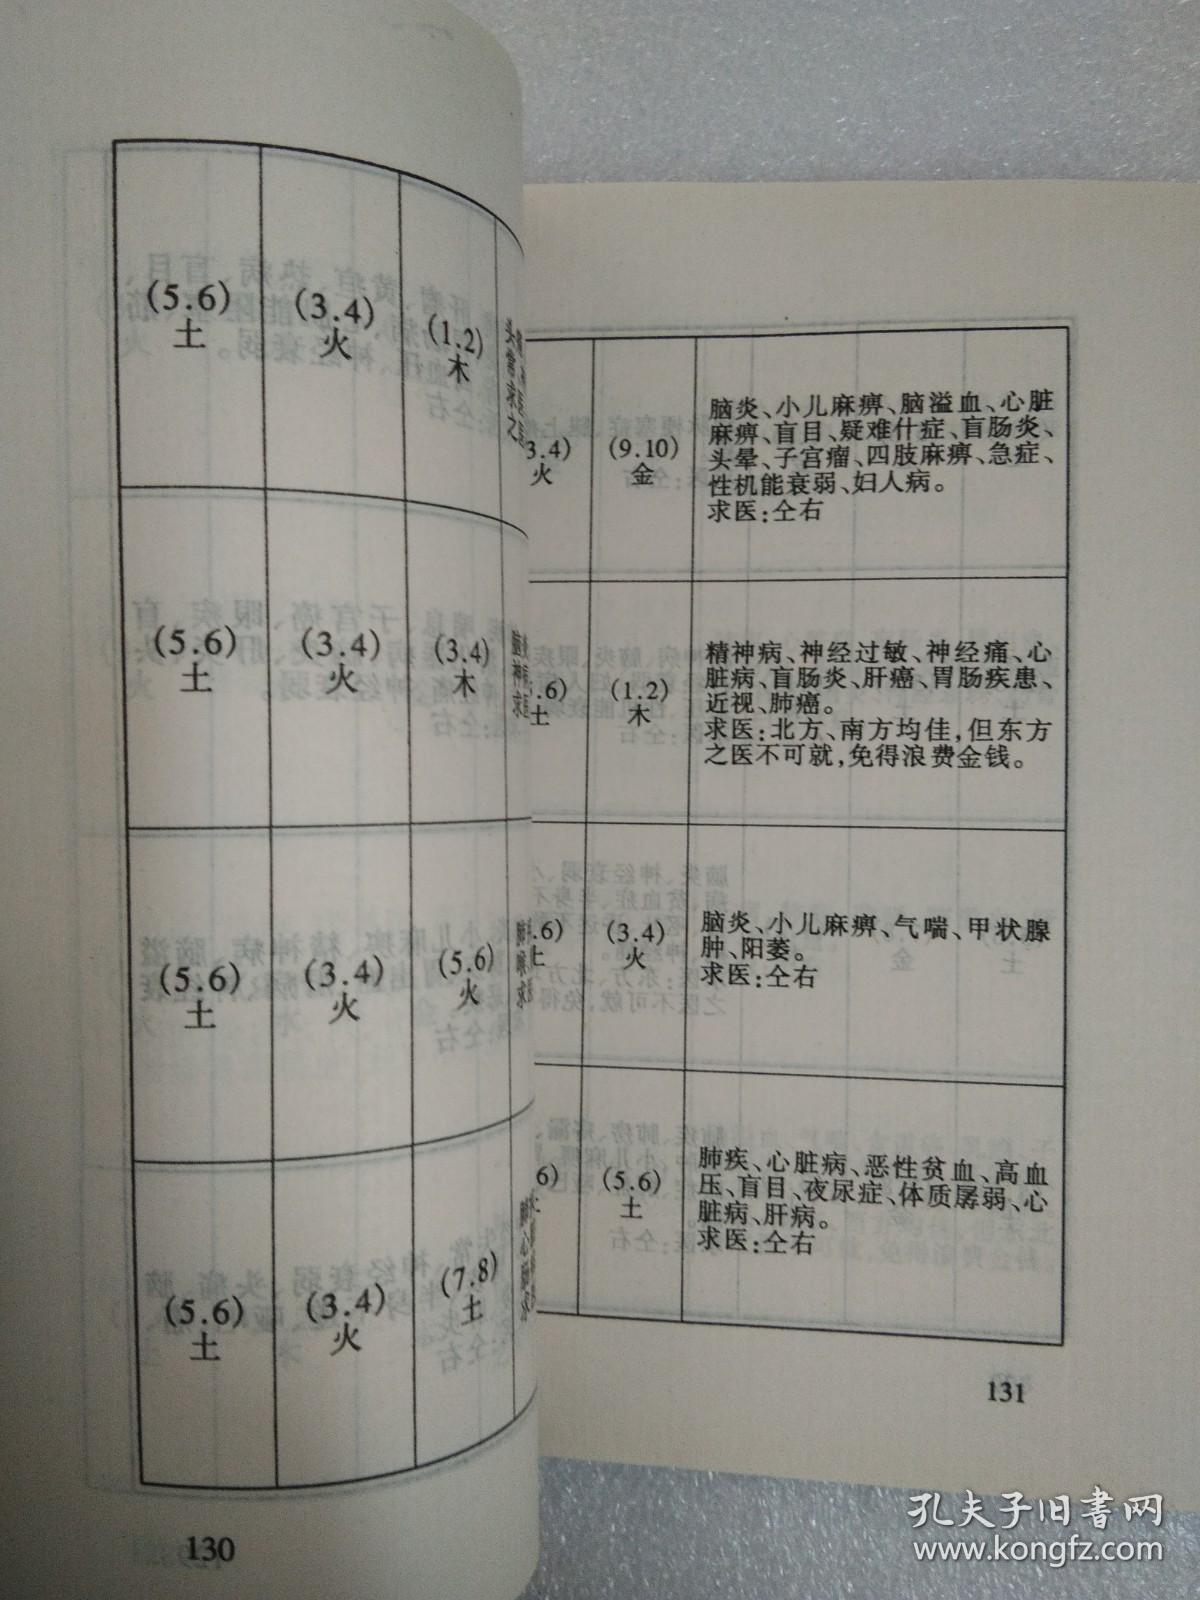 (5.6)
土
(3.4)
火
(1.2)
木
(5.6)
土
(3.4)
火
(3.4)
木
(5.6)
土
(3.4)
火
(5.6)
火
(5.6)
土
(3.4)
火
(7.8)
土
130
3.4)
火
(9.10)
金
脑炎、小儿麻痹、脑溢血、心脏
麻痹、盲目、疑难什症、盲肠炎、
头晕、子宫瘤、四肢麻痹、急症、
性机能衰弱、妇人病。
求医:仝右
.6)
土
(1.2)
木
精神病、神经过敏、神经痛、心
脏病、盲肠炎、肝癌、胃肠疾患、
近视、肺癌。
求医:北方、南方均佳,但东方
之医不可就,免得浪费金钱。
.6)
土
(3.4)
火
脑炎、小儿麻痹、气喘、甲状腺
肿、阳萎。
求医:仝右
6)
(5.6)
土
肺疾、心脏病、恶性贫血、高血
压、盲目、夜尿症、体质孱弱、心
脏病、肝病。
求医:仝右
131
孔夫子旧书网
www.kongfz.com